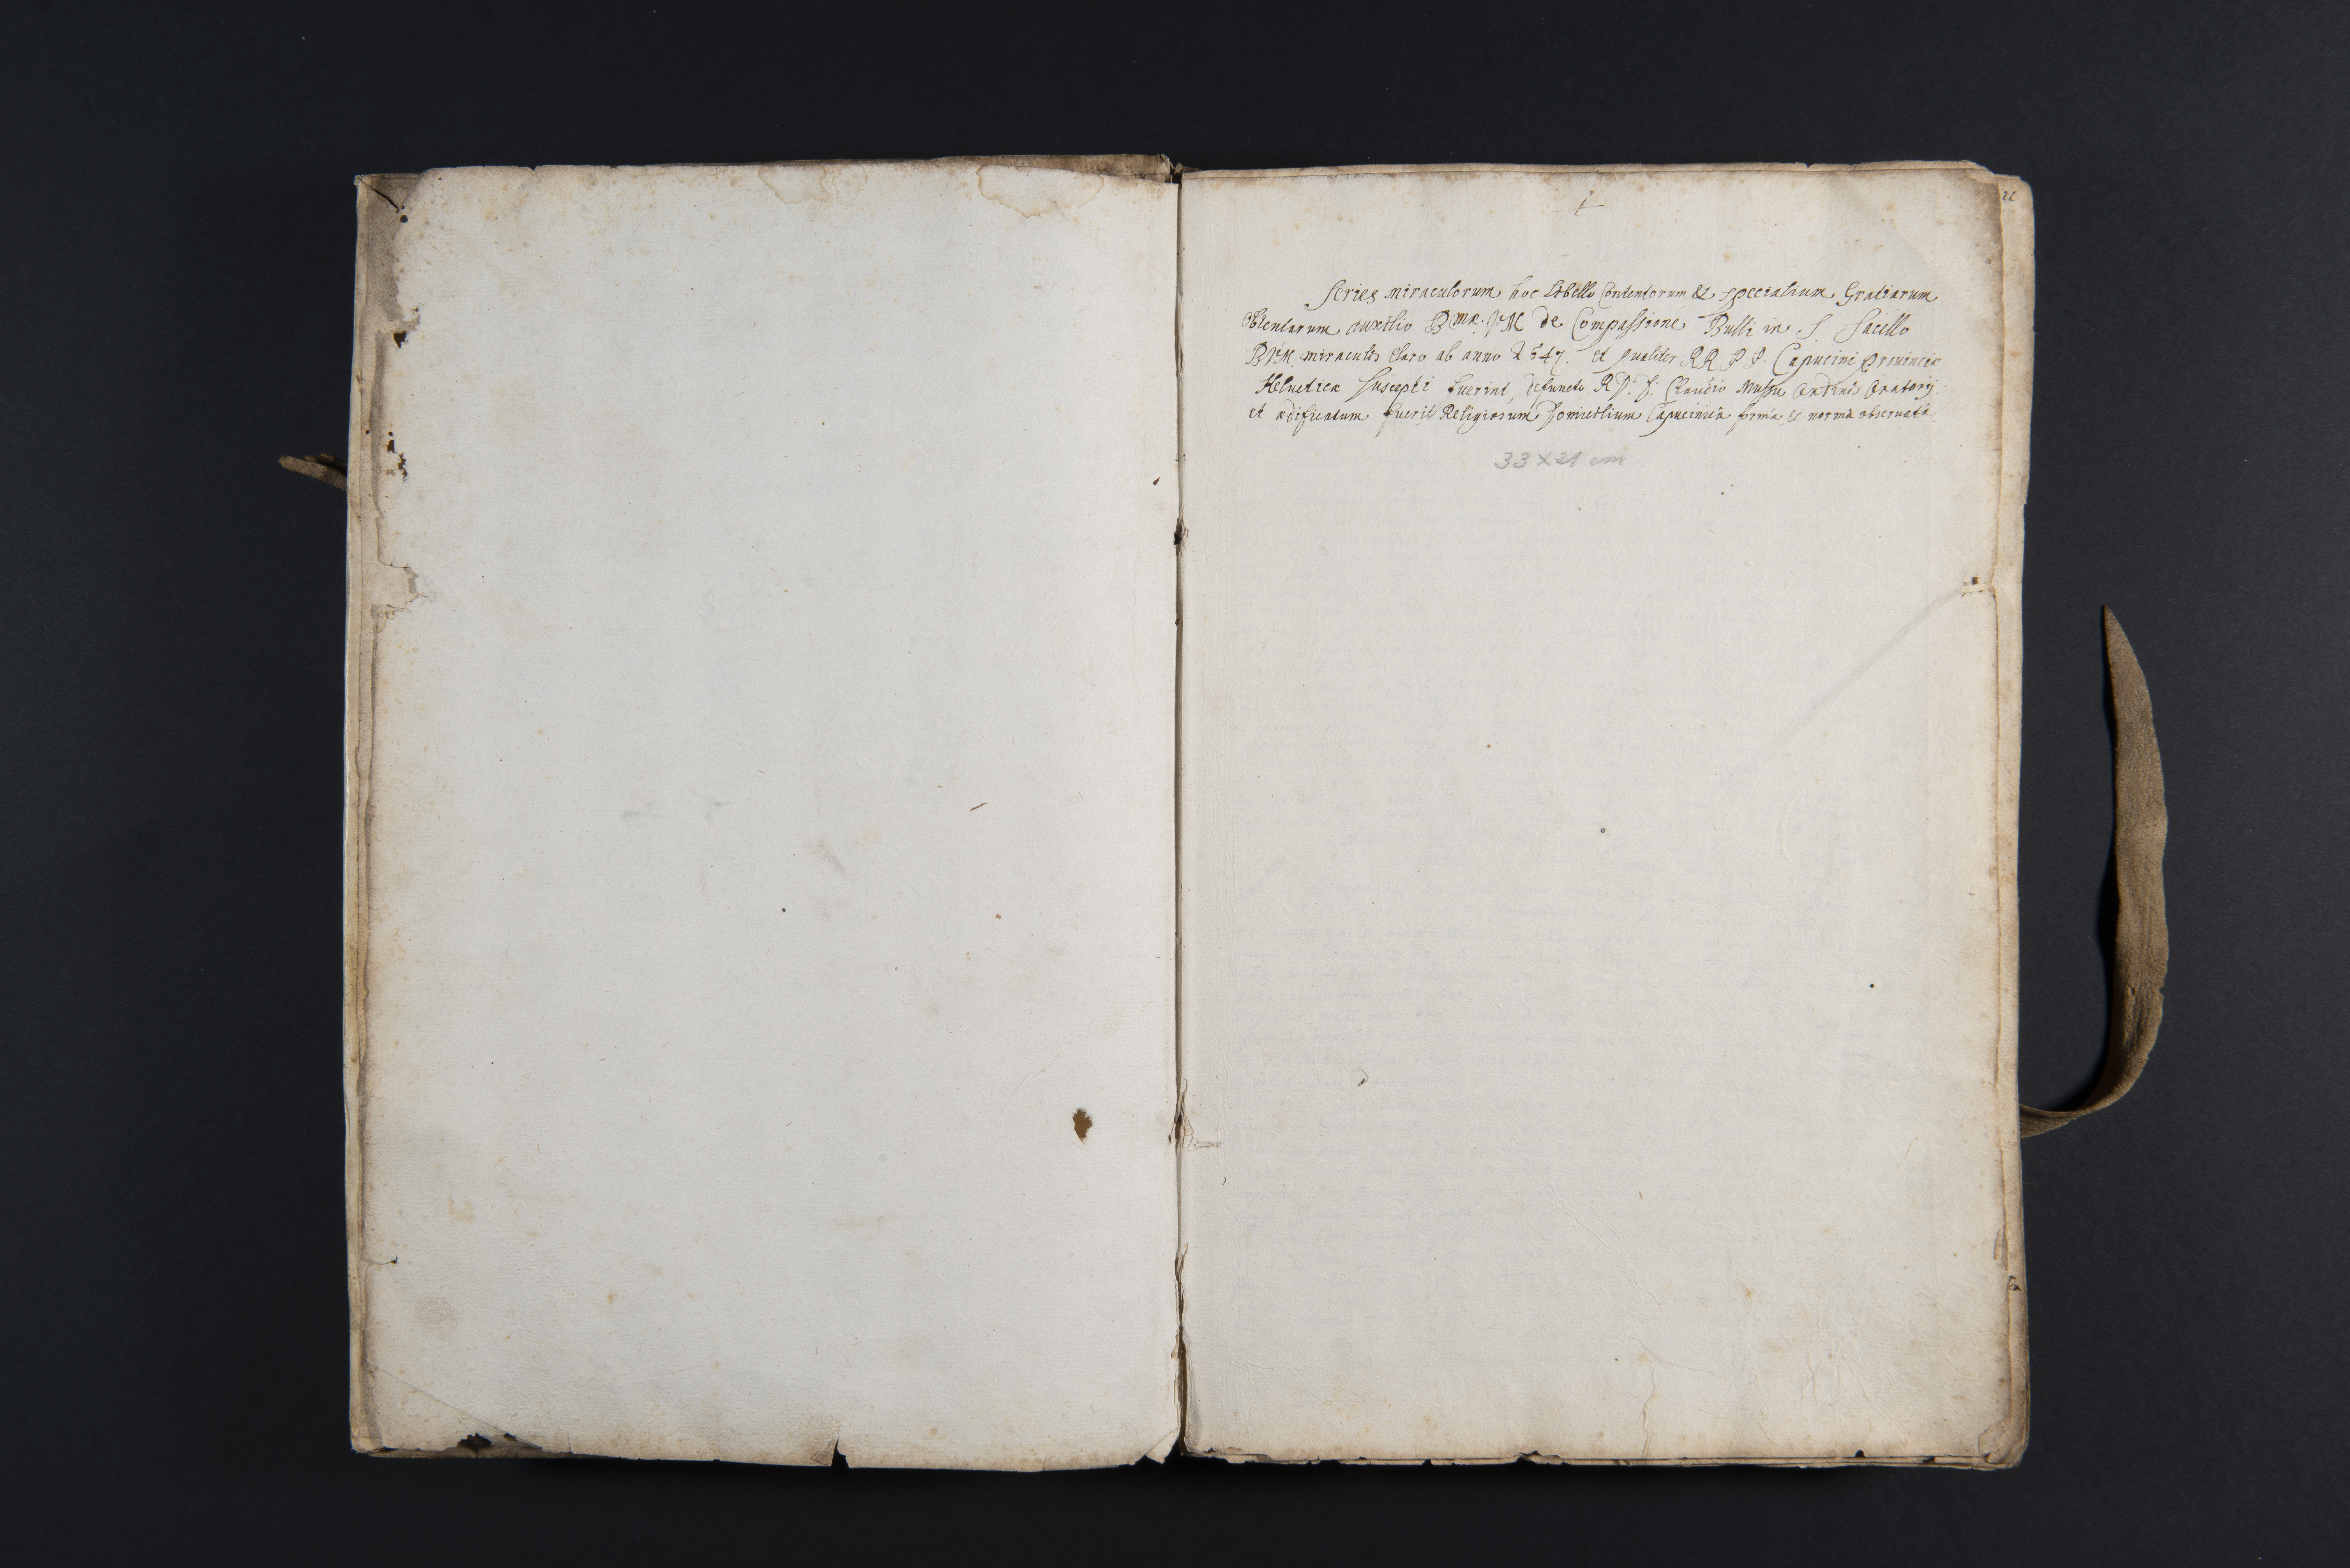 Series miraculorum hoc libello Contentorum & specialium Gratiarum
Obtentarum auxilio Bmæ. VM de Compassione Bulli in S Sacello
BVM miraculis Claro ab anno 1547. et qualiter RR PP. Capucini Prouinciæ
Heluetica suscepti fuerint, defuncto RD. D: Claudio Oratorij
et ædificatum fuerit Religiosum Domicilium Capucinica forma, & norma obseruata
33 x 21 cm